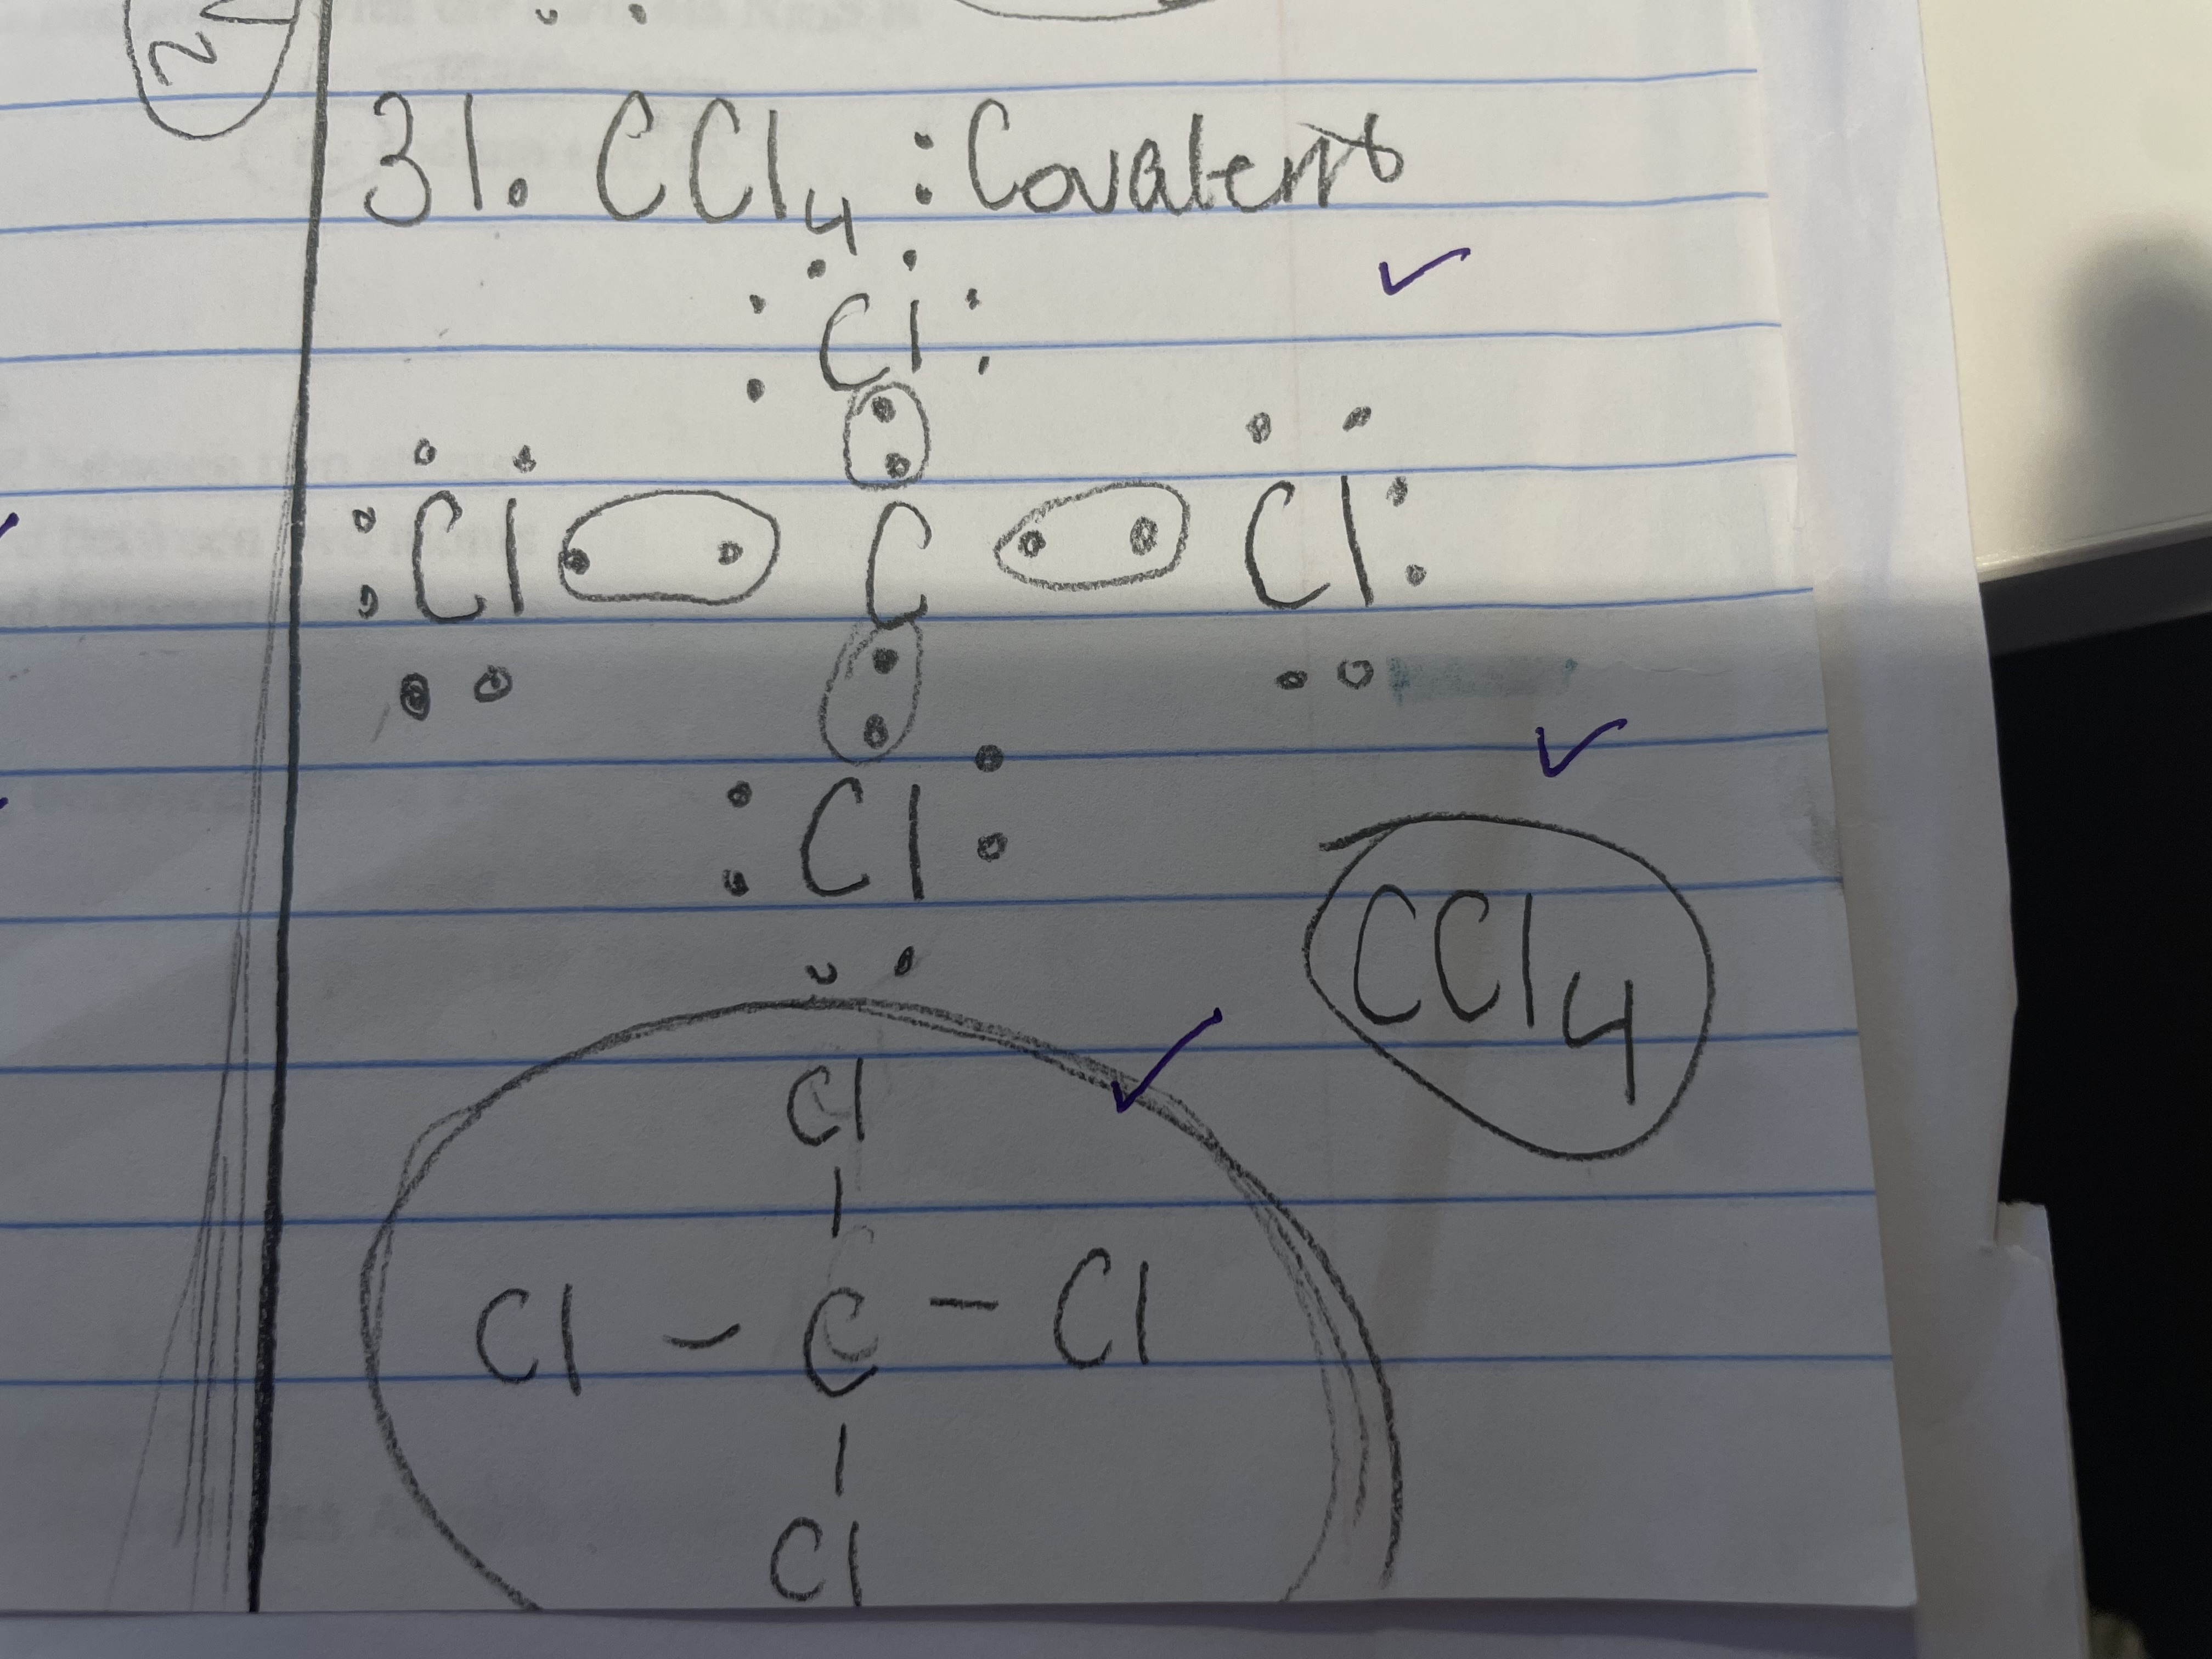 31. CCl4 : Covalent
Cl
Cl C Cl
Cl
CCl4
Cl
Cl - C - Cl
Cl